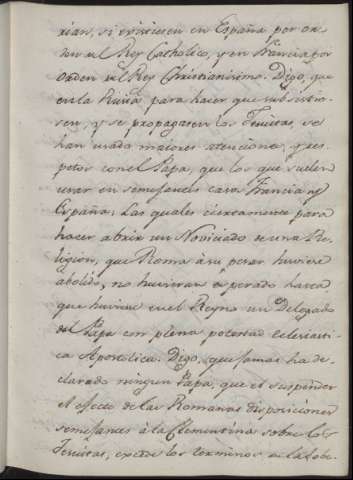 rian, si existiesen en España por or-
den del Rey Catholico, y en Francia por
orden del Rey Christianisimo. Digo, que
en la Rusia para hacer que subsistie-
sen, y se propagasen los Jesuitas, se
han usado maiores atenciones, y res-
petos con el Papa, que los que suelen
usar en semejantes casos Francia y
España; Las quales ciertamente para
hacer abrir un Noviciado de una Re-
ligion, que Roma à su pesar huviese
abolido, no huvieran esperado hasta,
que huviese en el Reyno un Delegado
del Papa con plena potestad eclesiasti-
ca Apostolica. Digo, que jamas ha de-
clarado ningun Papa, que el suspender
el efecto de las Romanas disposiciones
semejantes à la Clementina sobre los
Jesuitas, excede los terminos de la Sobe-